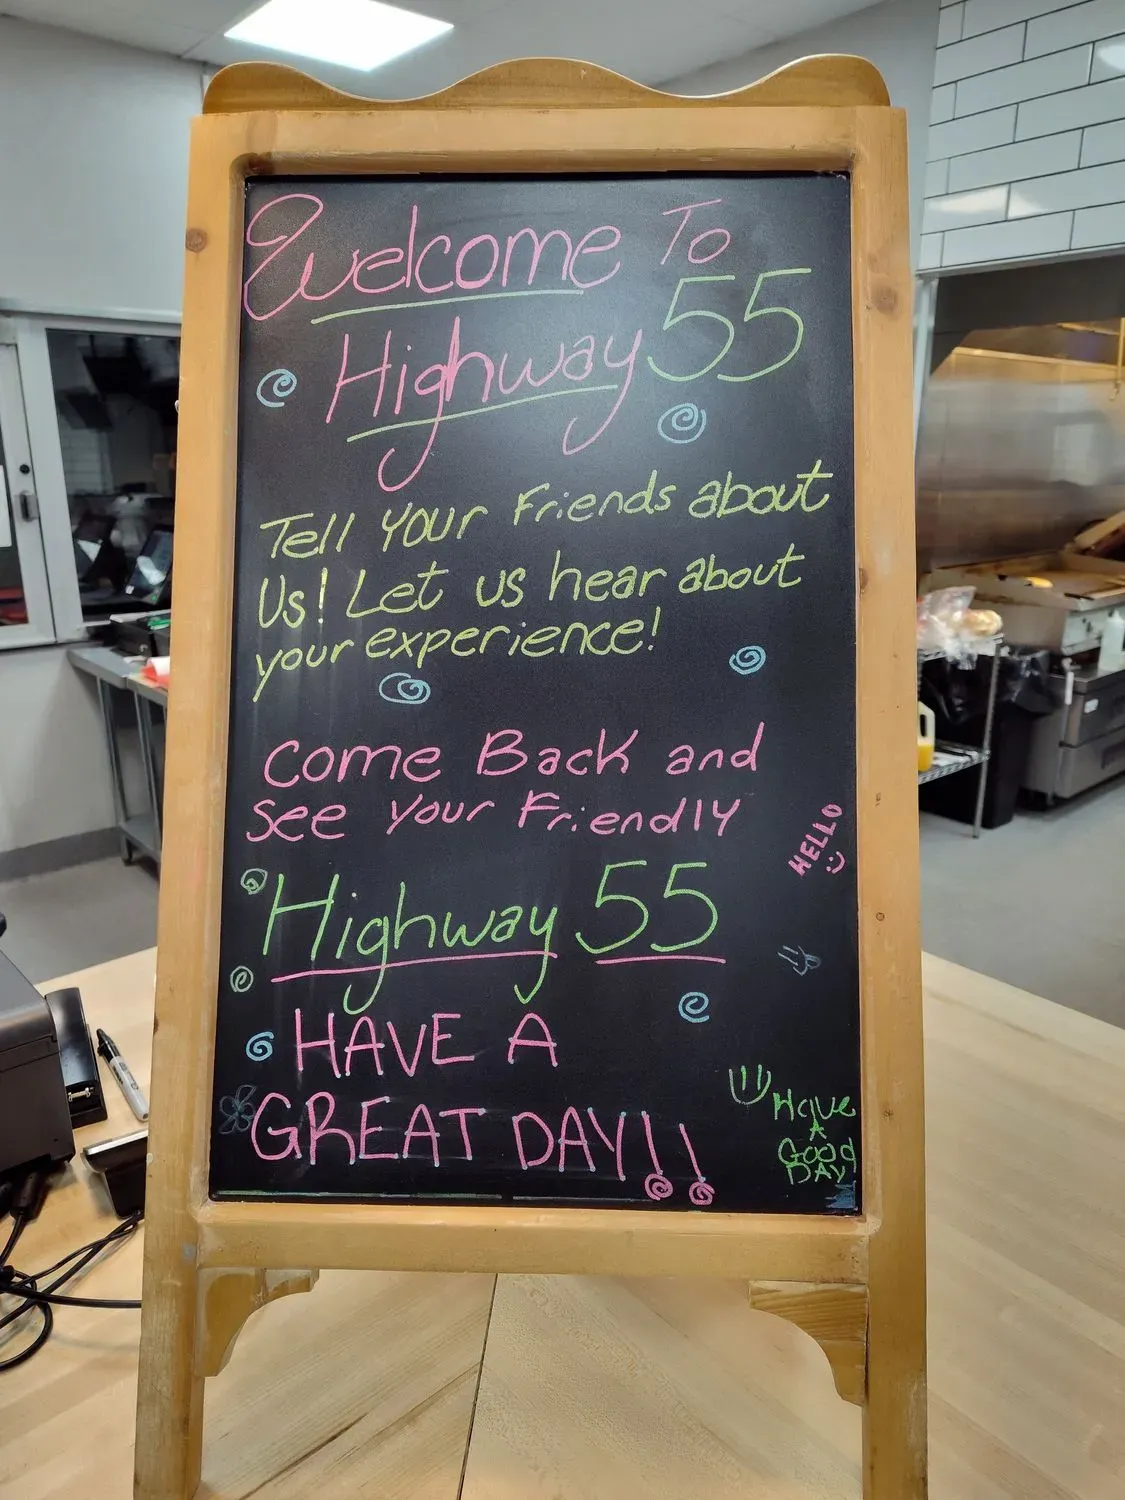 Welcome To
Highway 55
Tell Your Friends about
Us! Let us hear about
your experience!
Come Back and
see your Friendly
HELLO
Highway 55
HAVE A
GREAT DAY!!
Have
A
Good
DAY